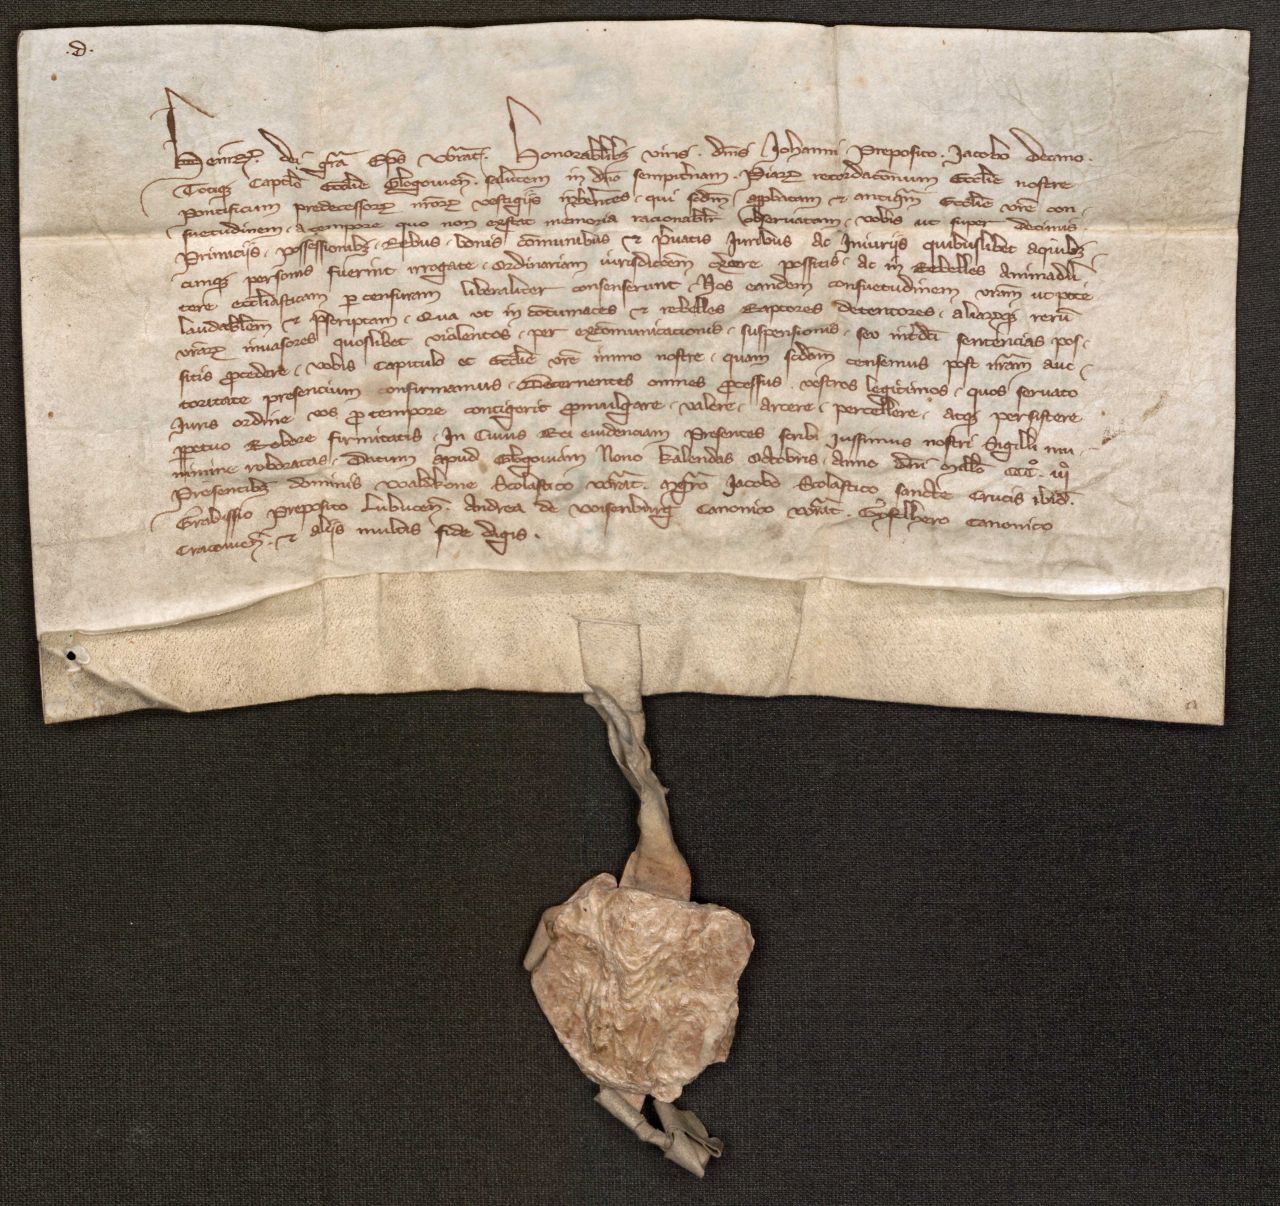 .d.
Heinr. dei gra Eps Wrat. Honorabilibz viris. dnis Johanni Preposito. Jacobo Decano.
Totiqz Caplo Ecclie Glogouien. salutem in dno sempiternam. Piarz recordacionum Ecclie nostre
Pontificum predecessorz nrorz vestigijs inherentes. qui scdm approbatam et antiquam Ecclie vre con-
suetudinem. a tempore quo non exstat memoria racionabilr obseruatam. vobis ut super decimis.
Primicijs. possessionibz. Rebus. bonis comunibus et Priuatis Juribus Ac Iniurijs quibuslibet a quibz-
cunqz personis fuerint irrogate. Ordinariam iurisdiccoem exercere possitis. Ac in Rebelles Animaduer-
tere ecclesiasticam per censuram liberaliter consenserunt. Nos eandem consuetudinem vram ut pote
laudabilem et prescriptam. Qua ut in contumaces et rebelles Raptores detentores. aliarqz rerum
vrarz inuasores quoslibet violentos. per excomunicacionis. suspensionis. seo interdci sentencias pos-
sitis procedere. vobis Capitulo et Ecclie vre immo nostre. quam scdam censemus post nram auc-
toritate presencium confirmamus. Decernentes omnes processus vestros legitimos. quos seruato
Juris ordine. vos pro tempore contigerit promulgare. valere. arcere. percellere. atqz persistere
perpetuo Robore firmitatis. In Cuius Rei euidenciam Presentes scribi Jussimus nostri Sigilli mu-
nimine roboratas. Datum apud Glogouiam Nono kalendas Octobris. Anno Dni Millo CCCo. iijo
Presentibz dominis Waltkone Scolastico Wrat. Magro Jacobo Scolastico sancte Crucis ibid.
Grabissio Preposito Lubucen. Andrea de Woisenburg Canonico Wrat. Gyselhero Canonico
Cracouien. et alijs multis fide dignis.